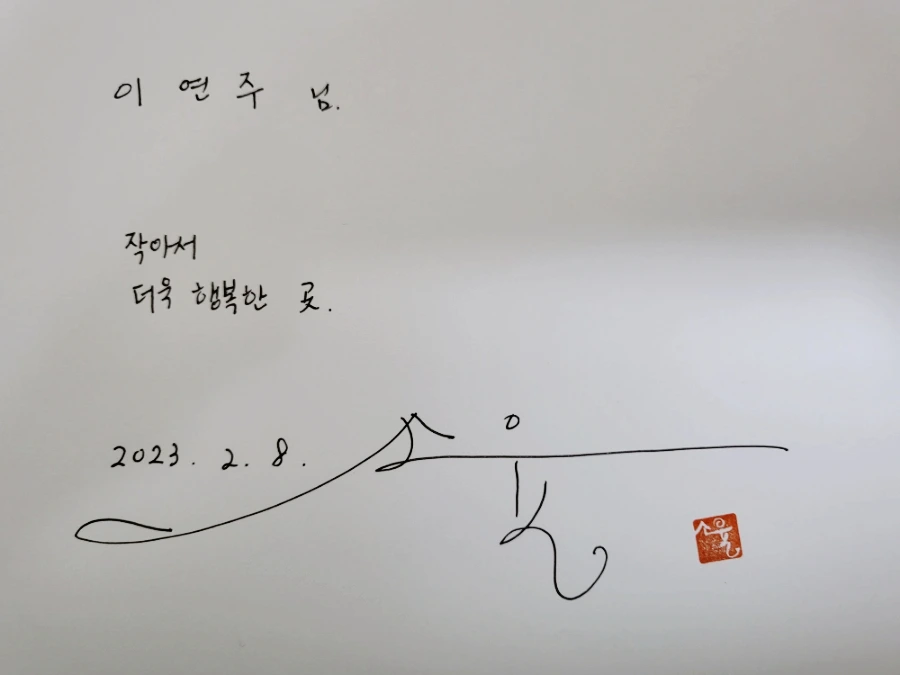 이 연주 님.
작아서
더욱 행복한 곳.
2023. 2. 8.